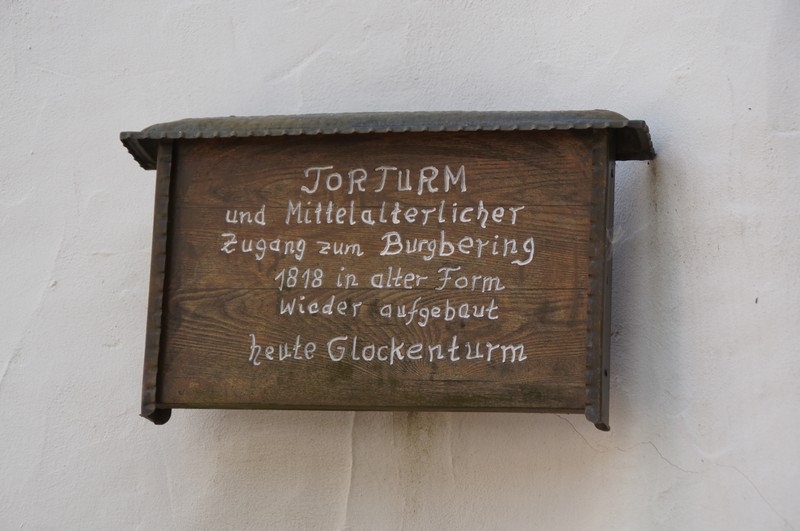 TORTURM
und Mittelalterlicher
Zugang zum Burgbering
1818 in alter Form
Wieder aufgebaut
heute Glockenturm